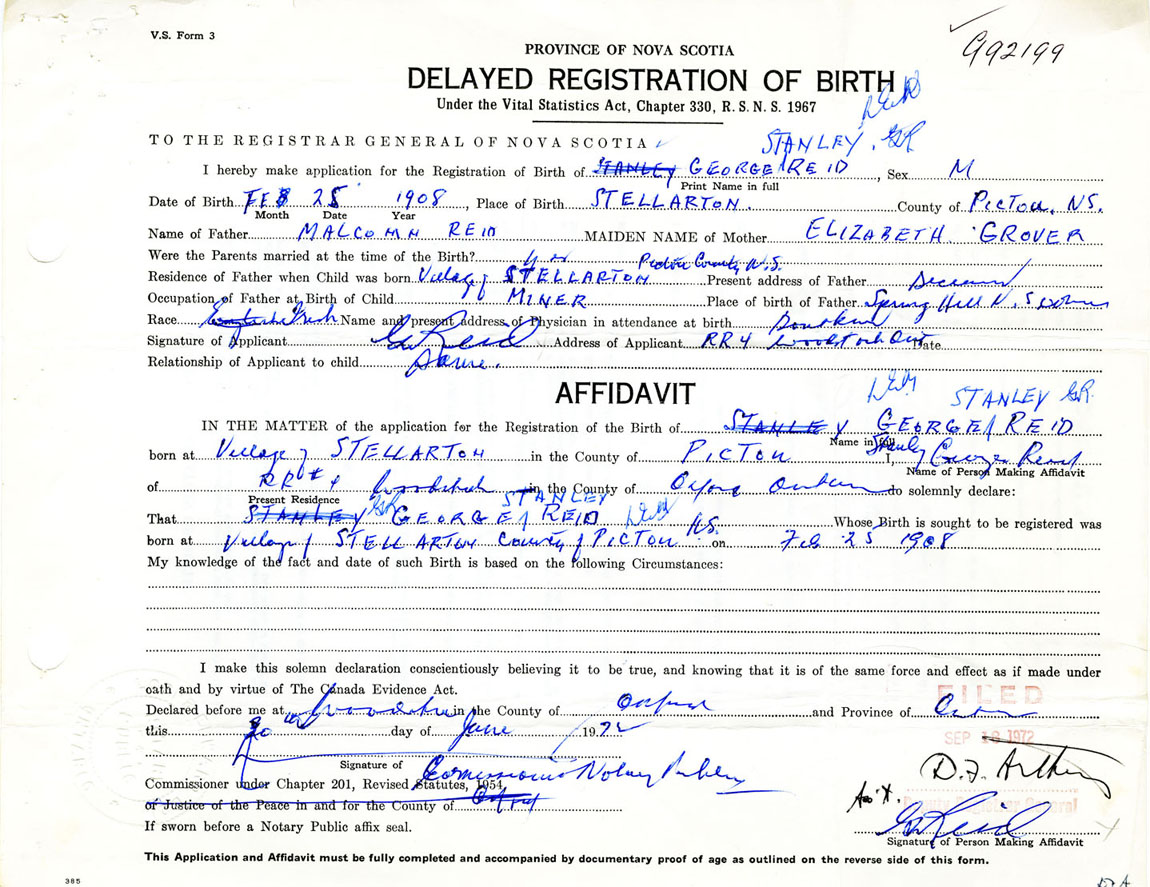 V.S. Form 3
992199
PROVINCE OF NOVA SCOTIA
DELAYED REGISTRATION OF BIRTH
Under the Vital Statistics Act, Chapter 330, R. S. N. S. 1967
TO THE REGISTRAR GENERAL OF NOVA SCOTIA
STANLEY. GR
I hereby make application for the Registration of Birth of STANLEY GEORGE REID, Sex M
Print Name in full
Date of Birth FEB 25 1908, Place of Birth STELLARTON. County of PICTOU, NS.
Month Date Year
Name of Father MALCOMN REID MAIDEN NAME of Mother ELIZABETH GROVER
Were the Parents married at the time of the Birth? yes Pictou County N.S.
Residence of Father when Child was born Village of STELLARTON Present address of Father
Occupation of Father at Birth of Child MINER Place of birth of Father Spring Hill N.S
Race Name and present Address of Physician in attendance at birth
Signature of Applicant G Reid Address of Applicant RR4 Woodstock Ont Date
Relationship of Applicant to child Same.
AFFIDAVIT
STANLEY GR.
IN THE MATTER of the application for the Registration of the Birth of STANLEY GEORGE REID
Name in full
born at Village of STELLARTON in the County of PICTOU I, Stanley George Reid
Name of Person Making Affidavit
of RR# 4 Woodstock in the County of Oxford Ontario do solemnly declare:
Present Residence
STANLEY GR
That STANLEY GEORGE REID Whose Birth is sought to be registered was
born at Village of STELLARTON County of PICTOU NS. on Feb 25 1908
My knowledge of the fact and date of such Birth is based on the following Circumstances:
I make this solemn declaration conscientiously believing it to be true, and knowing that it is of the same force and effect as if made under
oath and by virtue of The Canada Evidence Act.
FILED
Declared before me at Woodstock in the County of Oxford and Province of Ont
this 20 day of June 1972
SEP 18 1972
Signature of Commissioner Notary Public
D.J. Arthur
Commissioner under Chapter 201, Revised Statutes, 1954,
Deputy Registrar General
or Justice of the Peace in and for the County of Oxford
G Reid
If sworn before a Notary Public affix seal.
Signature of Person Making Affidavit
This Application and Affidavit must be fully completed and accompanied by documentary proof of age as outlined on the reverse side of this form.
385